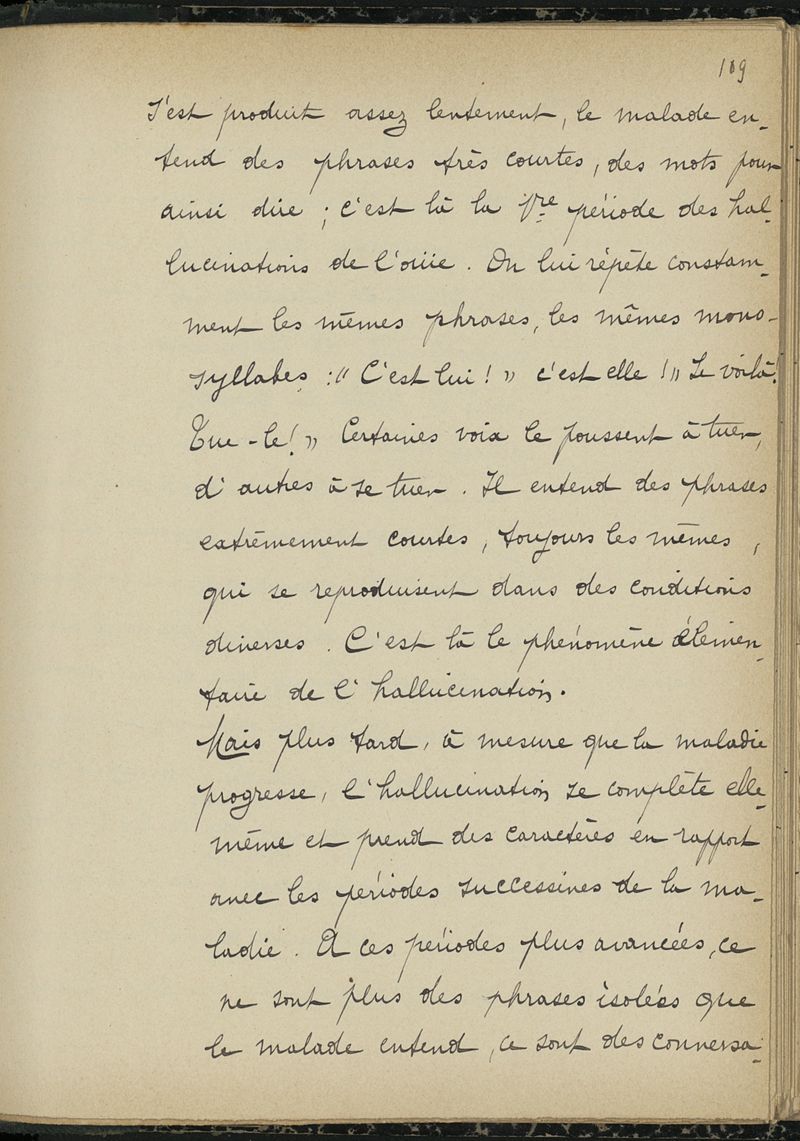 109
s'est produit assez lentement, le malade en-
tend des phrases très courtes, des mots pour
ainsi dire ; c'est là la 1re période des hal-
lucinations de l'ouïe. On lui répète constam-
ment les mêmes phrases, les mêmes mono-
syllabes : " C'est lui ! " c'est elle ! " Le voilà !
Tue-le ! " Certaines voix le poussent à tuer,
d'autres à se tuer. Il entend des phrases
extrêmement courtes, toujours les mêmes,
qui se reproduisent dans des conditions
diverses. C'est là le phénomène élémen-
taire de l'hallucination.
Mais plus tard, à mesure que la maladie
progresse, l'hallucination se complète elle-
même et prend des caractères en rapport
avec les périodes successives de la ma-
ladie. A ces périodes plus avancées, ce
ne sont plus des phrases isolées que
le malade entend, ce sont des conversa-